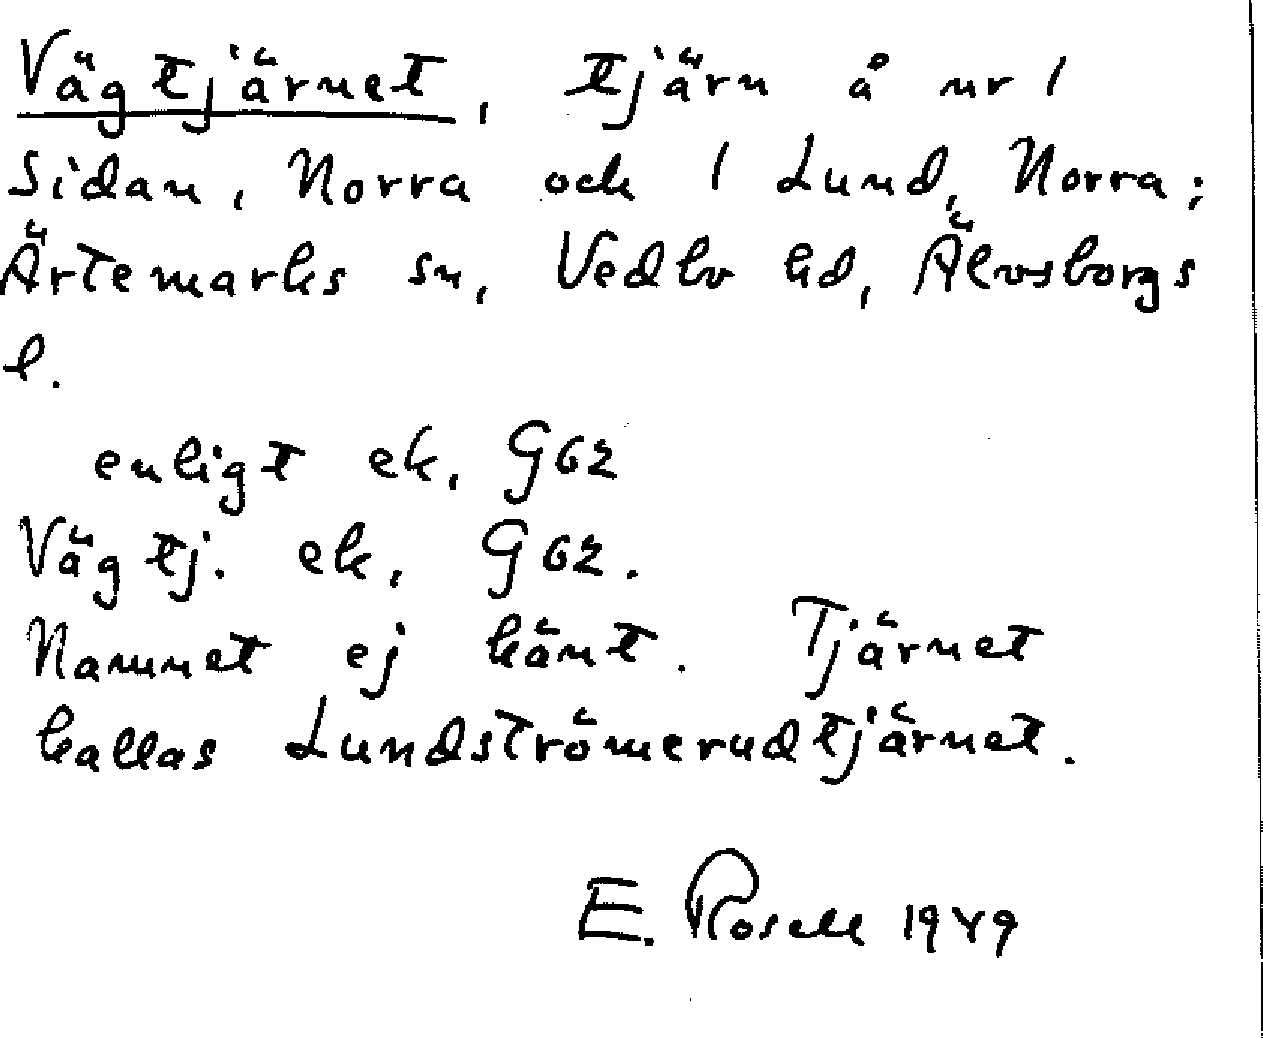 Vägtjärnet, tjärn å nr 1
Sidan, Norra och 1 Lund, Norra;
Ärtemarks sn, Vedbo hd, Älvsborgs
l.
enligt ek. G62
Väg tj. ek. G62.
Namnet ej känt. Tjärnet
kallas Lundströmerudtjärnet.
E. Rosell 1949